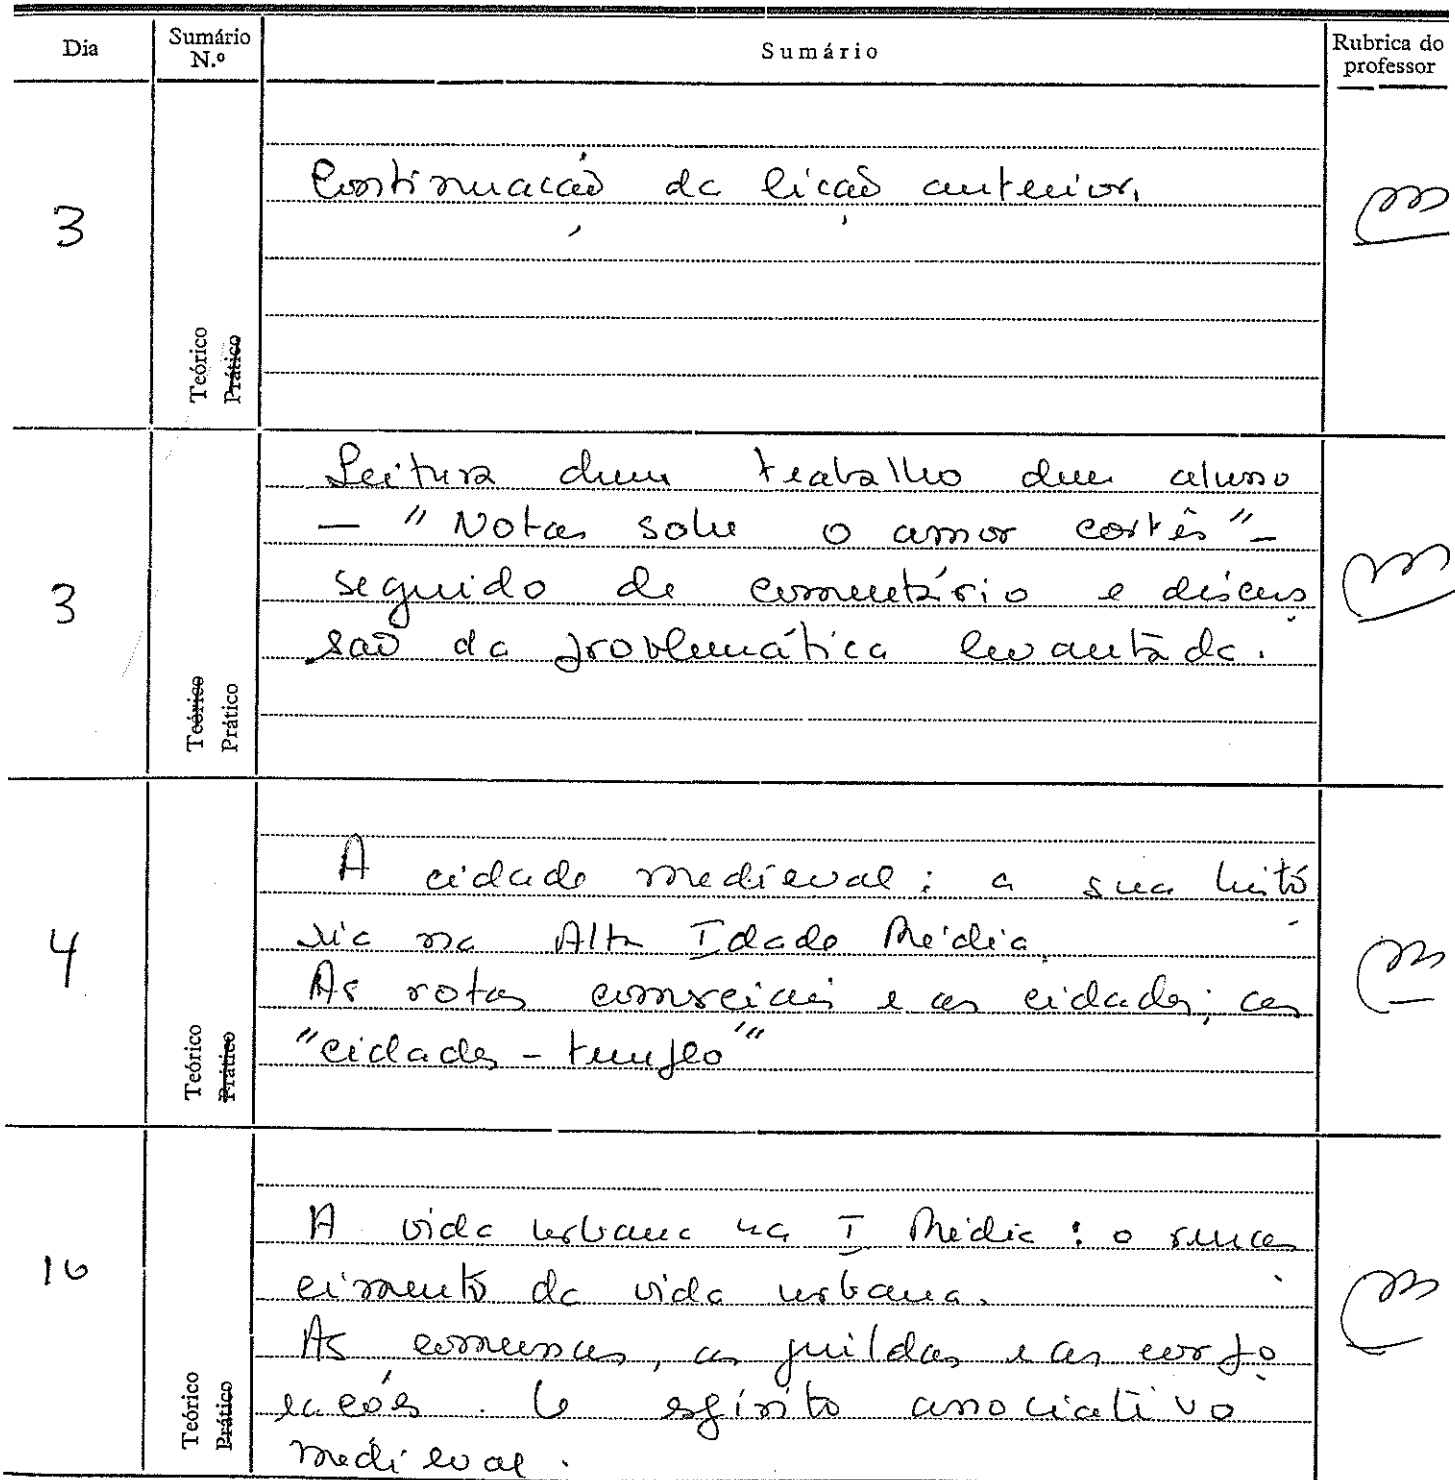 Dia
Sumário N.º
Sumário
Rubrica do professor
3
Teórico
Prático
Continuação da lição anterior.
3
Teórico
Prático
Leitura dum trabalho dum aluno
— "Notas sobre o amor cortês" —
seguido de comentário e discus
são da problemática levantada.
4
Teórico
Prático
A cidade medieval: a sua histó
ria na Alta Idade Média
As rotas comerciais e as cidades; as
"cidades - templo"
10
Teórico
Prático
A vida urbana na I Média: o renas
cimento da vida urbana.
As comunas, as guildas e as corpo
rações. O espírito associativo
medieval.